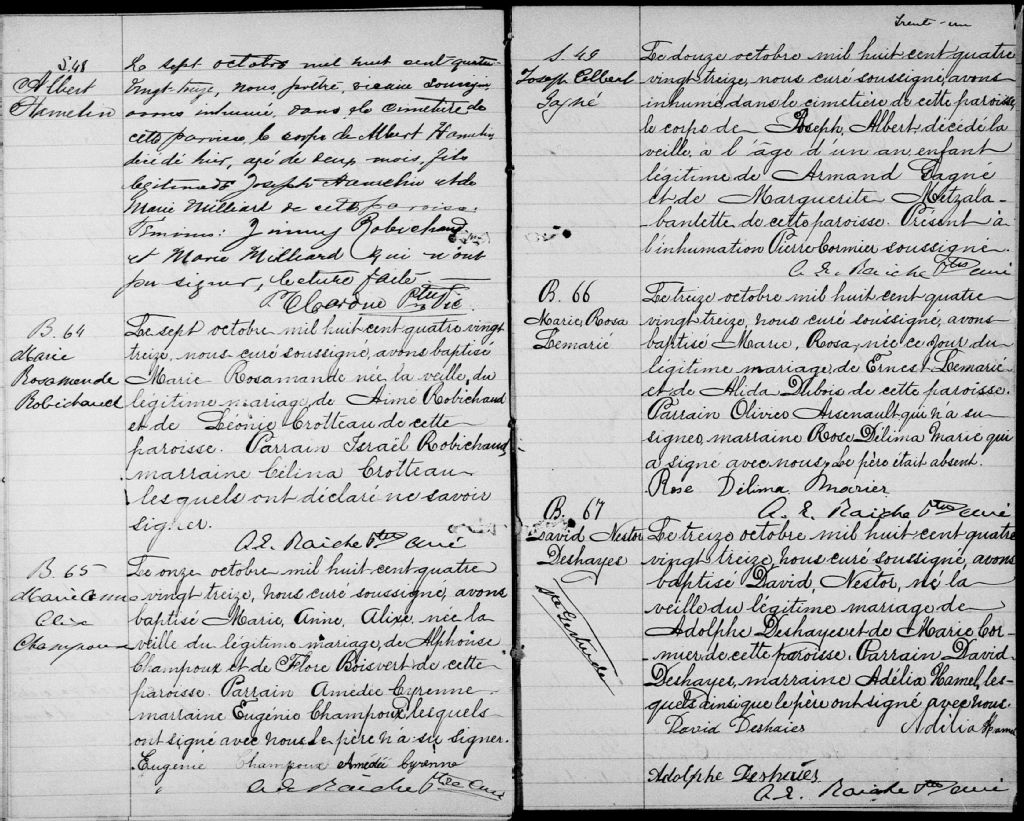 S. 48
Albert
Hamelin
Le sept octobre mil huit cent quatre
vingt-treize, nous, prêtre, vicaire soussigné
avons inhumé, dans le cimetière de
cette paroisse, le corps de Albert Hamelin
décédé hier, agé de deux mois, fils
légitime de Joseph Hamelin et de
Marie Milliard de cette paroisse.
Témoins: Jimmy Robichaud
et Marie Milliard qui n'ont
pu signer, lecture faite
Ptre Vic.
B. 64
Marie
Rosamande
Robichaud
Le sept octobre mil huit cent quatre vingt
treize, nous curé soussigné, avons baptisé
Marie Rosamande née la veille du
légitime mariage de Aimé Robichaud
et de Léonie Crotteau de cette
paroisse. Parrain Israël Robichaud,
marraine Célina Crotteau
lesquels ont déclaré ne savoir
signer.
A. E. Raiche Ptre curé
B. 65
Marie Anne
Alixe
Champoux
Le onze octobre mil huit cent quatre
vingt treize, nous curé soussigné, avons
baptisé Marie, Anne, Alixe, née la
veille du légitime mariage de Alphonse
Champoux et de Flore Boisvert de cette
paroisse. Parrain Amédée Cyrenne
marraine Eugénie Champoux lesquels
ont signé avec nous le père n'a su signer.
Eugénie Champoux Amédée Cyrenne
A. E. Raiche Ptre Curé
trente-un
S. 49
Joseph Albert
Gagné
Le douze octobre mil huit cent quatre
vingt treize, nous curé soussigné, avons
inhumé dans le cimetière de cette paroisse,
le corps de Joseph, Albert, décédé la
veille, à l'âge d'un an, enfant
légitime de Armand Gagné
et de Marguerite Metzala-
banlette de cette paroisse. Présent à
l'inhumation Pierre Cormier soussigné.
A. E. Raiche Ptre curé
B. 66
Marie, Rosa
Lemarié
Le treize octobre mil huit cent quatre
vingt treize, nous curé soussigné, avons
baptisé Marie, Rosa, née ce jour du
légitime mariage de Ernest Lemarié
et de Alida Dubois de cette paroisse.
Parrain Olivier Arsenault qui n'a su
signer, marraine Rose Délima Marié qui
a signé avec nous. Le père était absent.
Rose Délima Marier
A. E. Raiche Ptre curé
B. 67
David Nestor
Deshayes
Ste Gertrude
Le treize octobre mil huit cent quatre
vingt treize, nous curé soussigné, avons
baptisé David, Nestor, né la
veille du légitime mariage de
Adolphe Deshayes et de Marie Cor-
mier de cette paroisse. Parrain David
Deshayes, marraine Adélia Hamel, les-
quels ainsi que le père ont signé avec nous.
David Deshaies Adélia Hamel
Adolphe Deshaies
A. E. Raiche Ptre curé